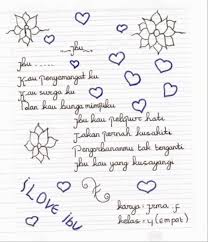 Ibu
Ibu .....
Kau penyemangat ku
Kau surga ku
Dan kau bunga mimpiku
Ibu kau pelipur hati
Takan pernah kusakiti
Pengorbananmu tak terganti
Ibu kau yang kusayangi
I LOVE Ibu
karya : irma .f
kelas : 4 (empat)